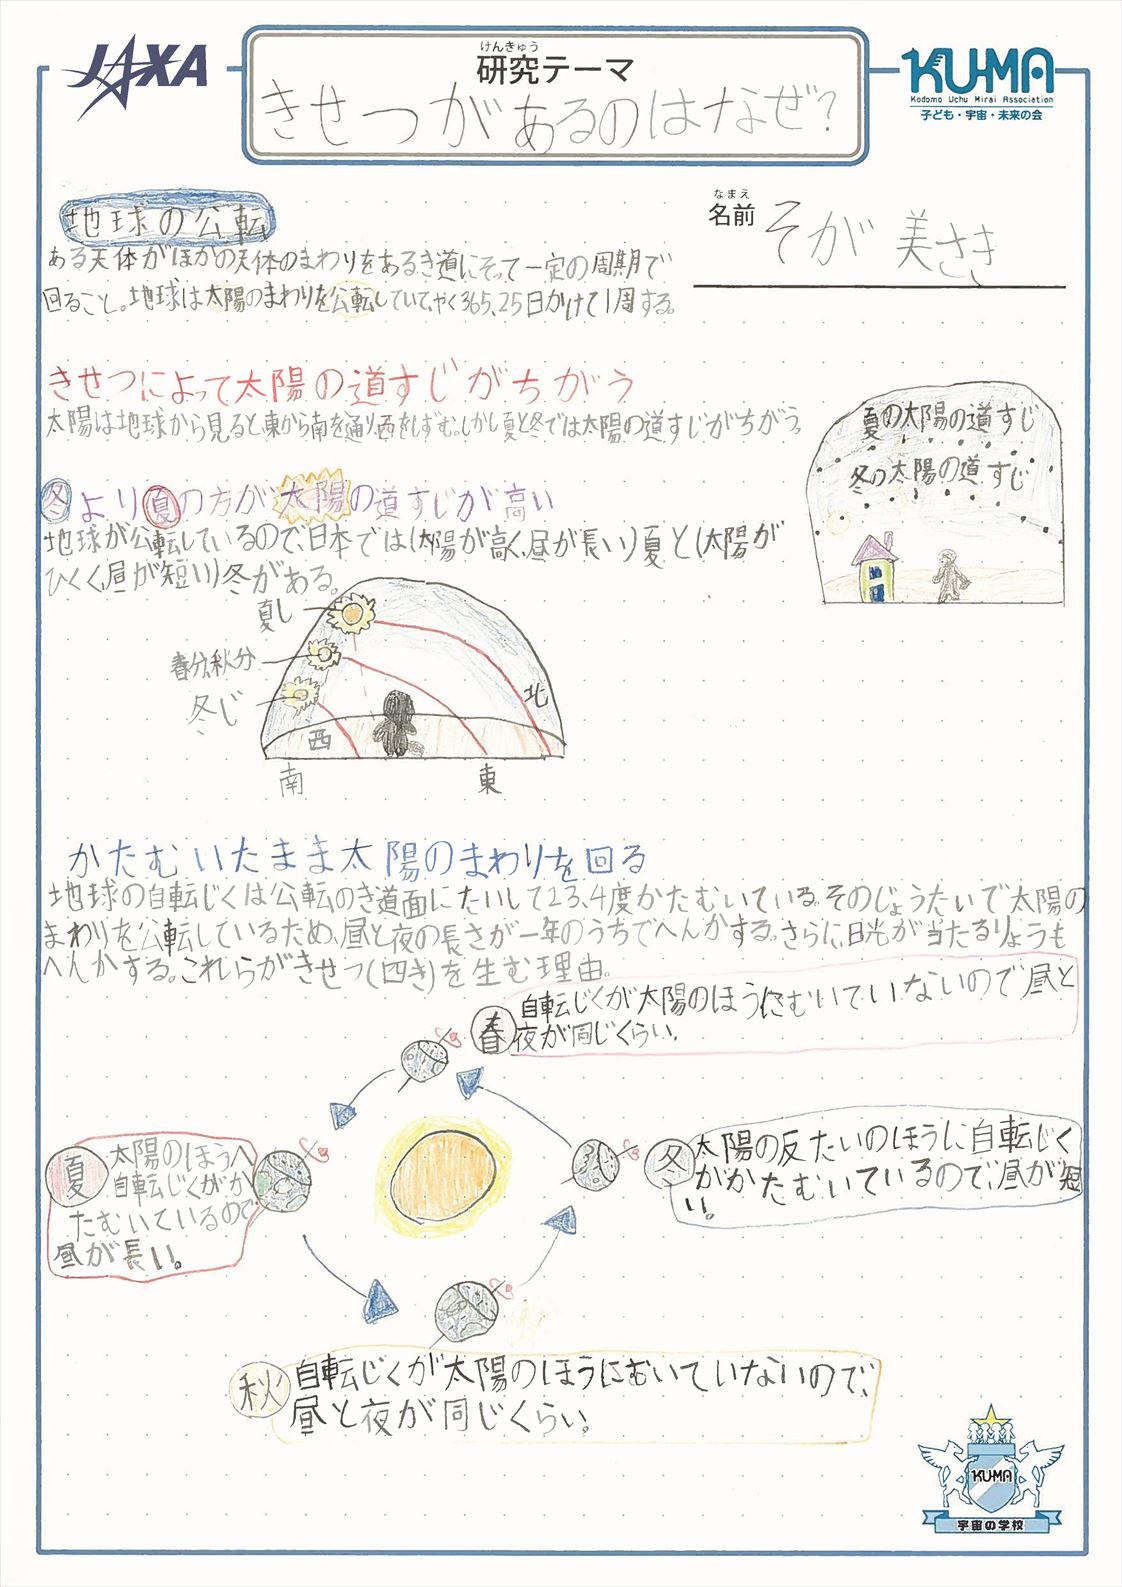 JAXA
けんきゅう
研究テーマ
きせつがあるのはなぜ?
KU-MA
Kodomo Uchu Mirai Association
子ども・宇宙・未来の会
なまえ
名前 そが 美さき
地球の公転
ある天体がほかの天体のまわりをあるき道にそって一定の周期で
回ること。地球は太陽のまわりを公転していて、やく365.25日かけて1周する。
きせつによって太陽の道すじがちがう
太陽は地球から見ると、東から南を通り、西をしずむ。しかし夏と冬では太陽の道すじがちがう。
夏の太陽の道すじ
冬の太陽の道すじ
冬より夏の方が太陽の道すじが高い
地球が公転しているので、日本では(太陽が高く、昼が長い)夏と(太陽が
ひくく、昼が短い)冬がある。
夏し
春分、秋分
冬じ
北
西
南
東
かたむいたまま太陽のまわりを回る
地球の自転じくは公転のき道面にたいして23.4度かたむいている。そのじょうたいで太陽の
まわりを公転しているため、昼と夜の長さが一年のうちでへんかする。さらに、日光が当たるりょうも
へんかする。これらがきせつ(四き)を生む理由。
春
自転じくが太陽のほうにむいていないので昼と
夜が同じくらい。
夏
太陽のほうへ
自転じくがか
たむいているので
昼が長い。
冬
太陽の反たいのほうに自転じく
がかたむいているので、昼が短
い。
秋
自転じくが太陽のほうにむいていないので、
昼と夜が同じくらい。
KU-MA
宇宙の学校